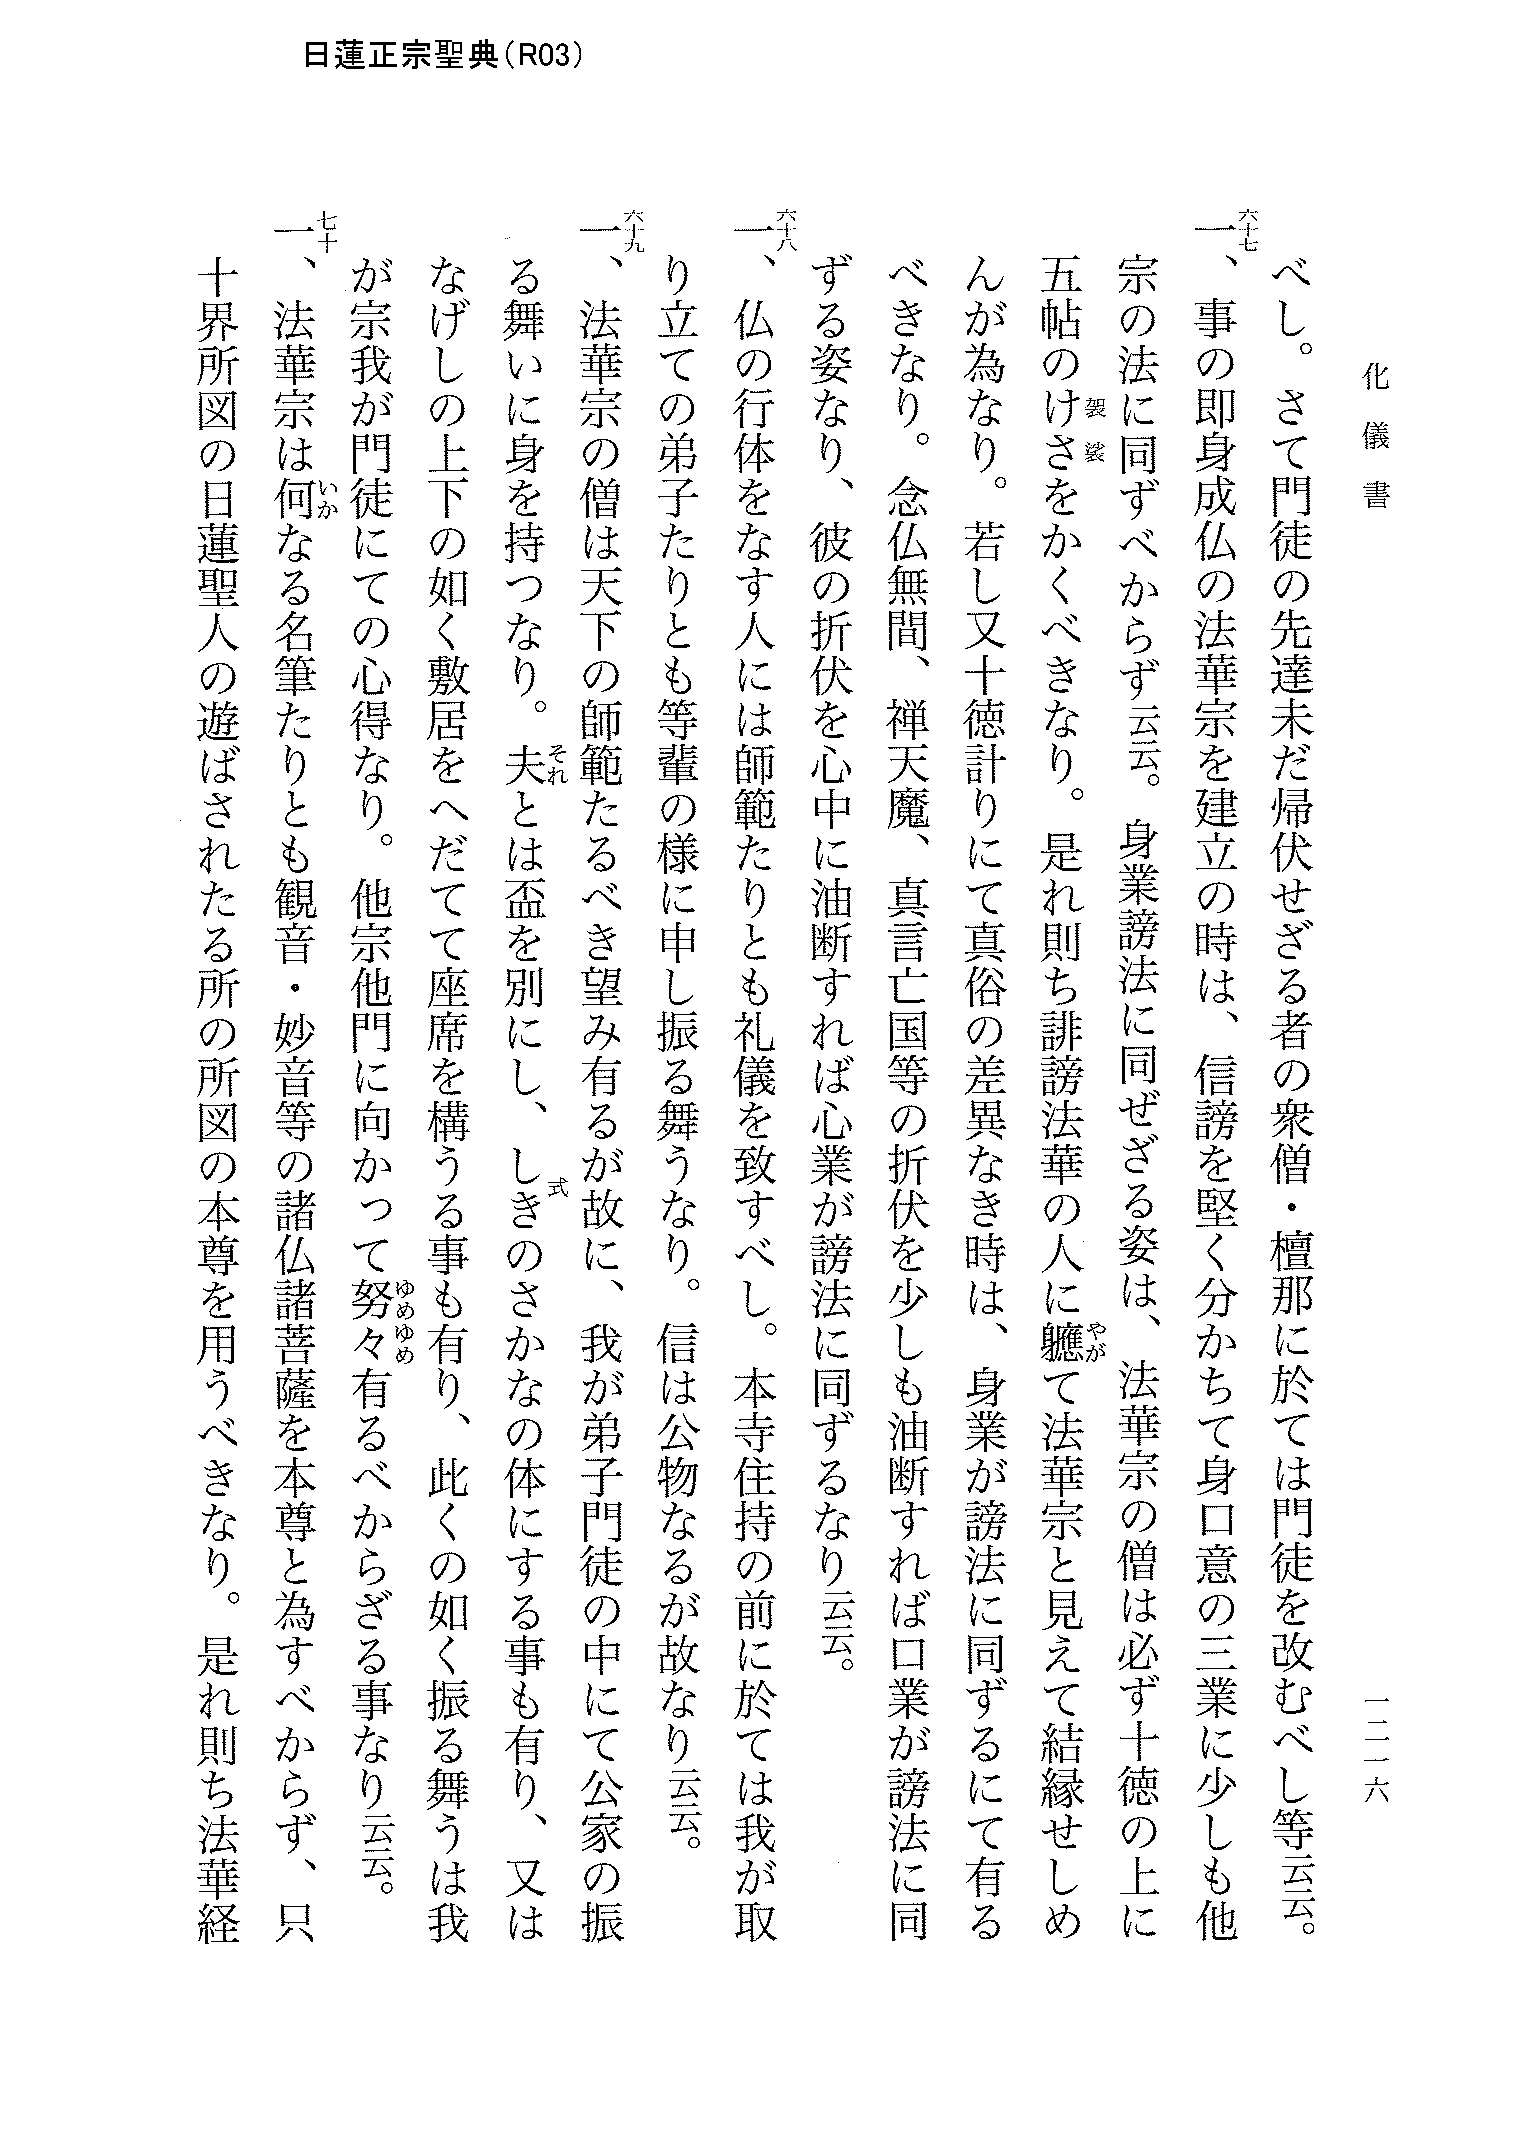 日蓮正宗聖典（R03）
化儀書
一二一六
べし。さて門徒の先達未だ帰伏せざる者の衆僧・檀那に於ては門徒を改むべし等云云。
六十七
一、事の即身成仏の法華宗を建立の時は、信謗を堅く分かちて身口意の三業に少しも他
宗の法に同ずべからず云云。身業謗法に同ぜざる姿は、法華宗の僧は必ず十徳の上に
袈裟
五帖のけさをかくべきなり。是れ則ち誹謗法華の人に軈て法華宗と見えて結縁せしめ
やが
んが為なり。若し又十徳計りにて真俗の差異なき時は、身業が謗法に同ずるにて有る
べきなり。念仏無間、禅天魔、真言亡国等の折伏を少しも油断すれば口業が謗法に同
ずる姿なり、彼の折伏を心中に油断すれば心業が謗法に同ずるなり云云。
六十八
一、仏の行体をなす人には師範たりとも礼儀を致すべし。本寺住持の前に於ては我が取
り立ての弟子たりとも等輩の様に申し振る舞うなり。信は公物なるが故なり云云。
六十九
一、法華宗の僧は天下の師範たるべき望み有るが故に、我が弟子門徒の中にて公家の振
る舞いに身を持つなり。夫とは盃を別にし、しきのさかなの体にする事も有り、又は
それ
式
なげしの上下の如く敷居をへだてて座席を構うる事も有り、此くの如く振る舞うは我
が宗我が門徒にての心得なり。他宗他門に向かって努々有るべからざる事なり云云。
ゆめゆめ
七十
一、法華宗は何なる名筆たりとも観音・妙音等の諸仏諸菩薩を本尊と為すべからず、只
いか
十界所図の日蓮聖人の遊ばされたる所の所図の本尊を用うべきなり。是れ則ち法華経